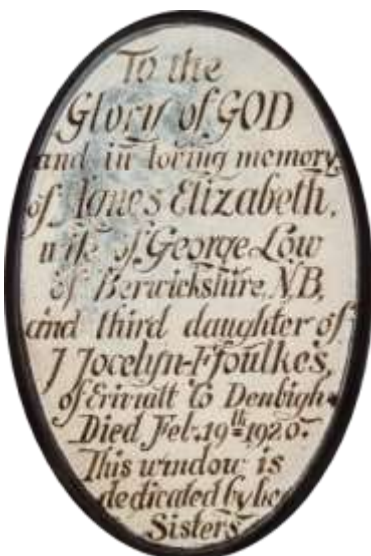 To the
Glory of GOD
and in loving memory
of Agnes Elizabeth,
wife of George Low
of Berwickshire, N.B.
and third daughter of
J Jocelyn-Ffoulkes,
of Eriviatt Co Denbigh.
Died Feb. 19th 1920.
This window is
dedicated by her
Sisters